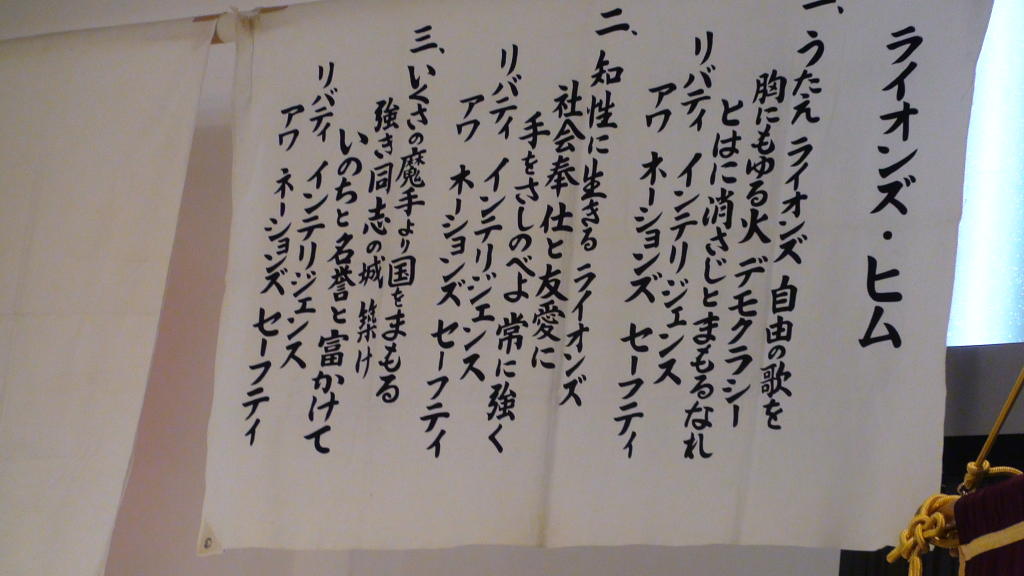 ライオンズ・ヒム
一、うたえ ライオンズ 自由の歌を
胸にもゆる火 デモクラシー
とはに消さじとまもるなれ
リバティ インテリジェンス
アワ ネーションズ セーフティ
二、知性に生きる ライオンズ
社会奉仕と友愛に
手をさしのべよ 常に強く
リバティ インテリジェンス
アワ ネーションズ セーフティ
三、いくさの魔手より国をまもる
強き同志の城 築け
いのちと名誉と富かけて
リバティ インテリジェンス
アワ ネーションズ セーフティ